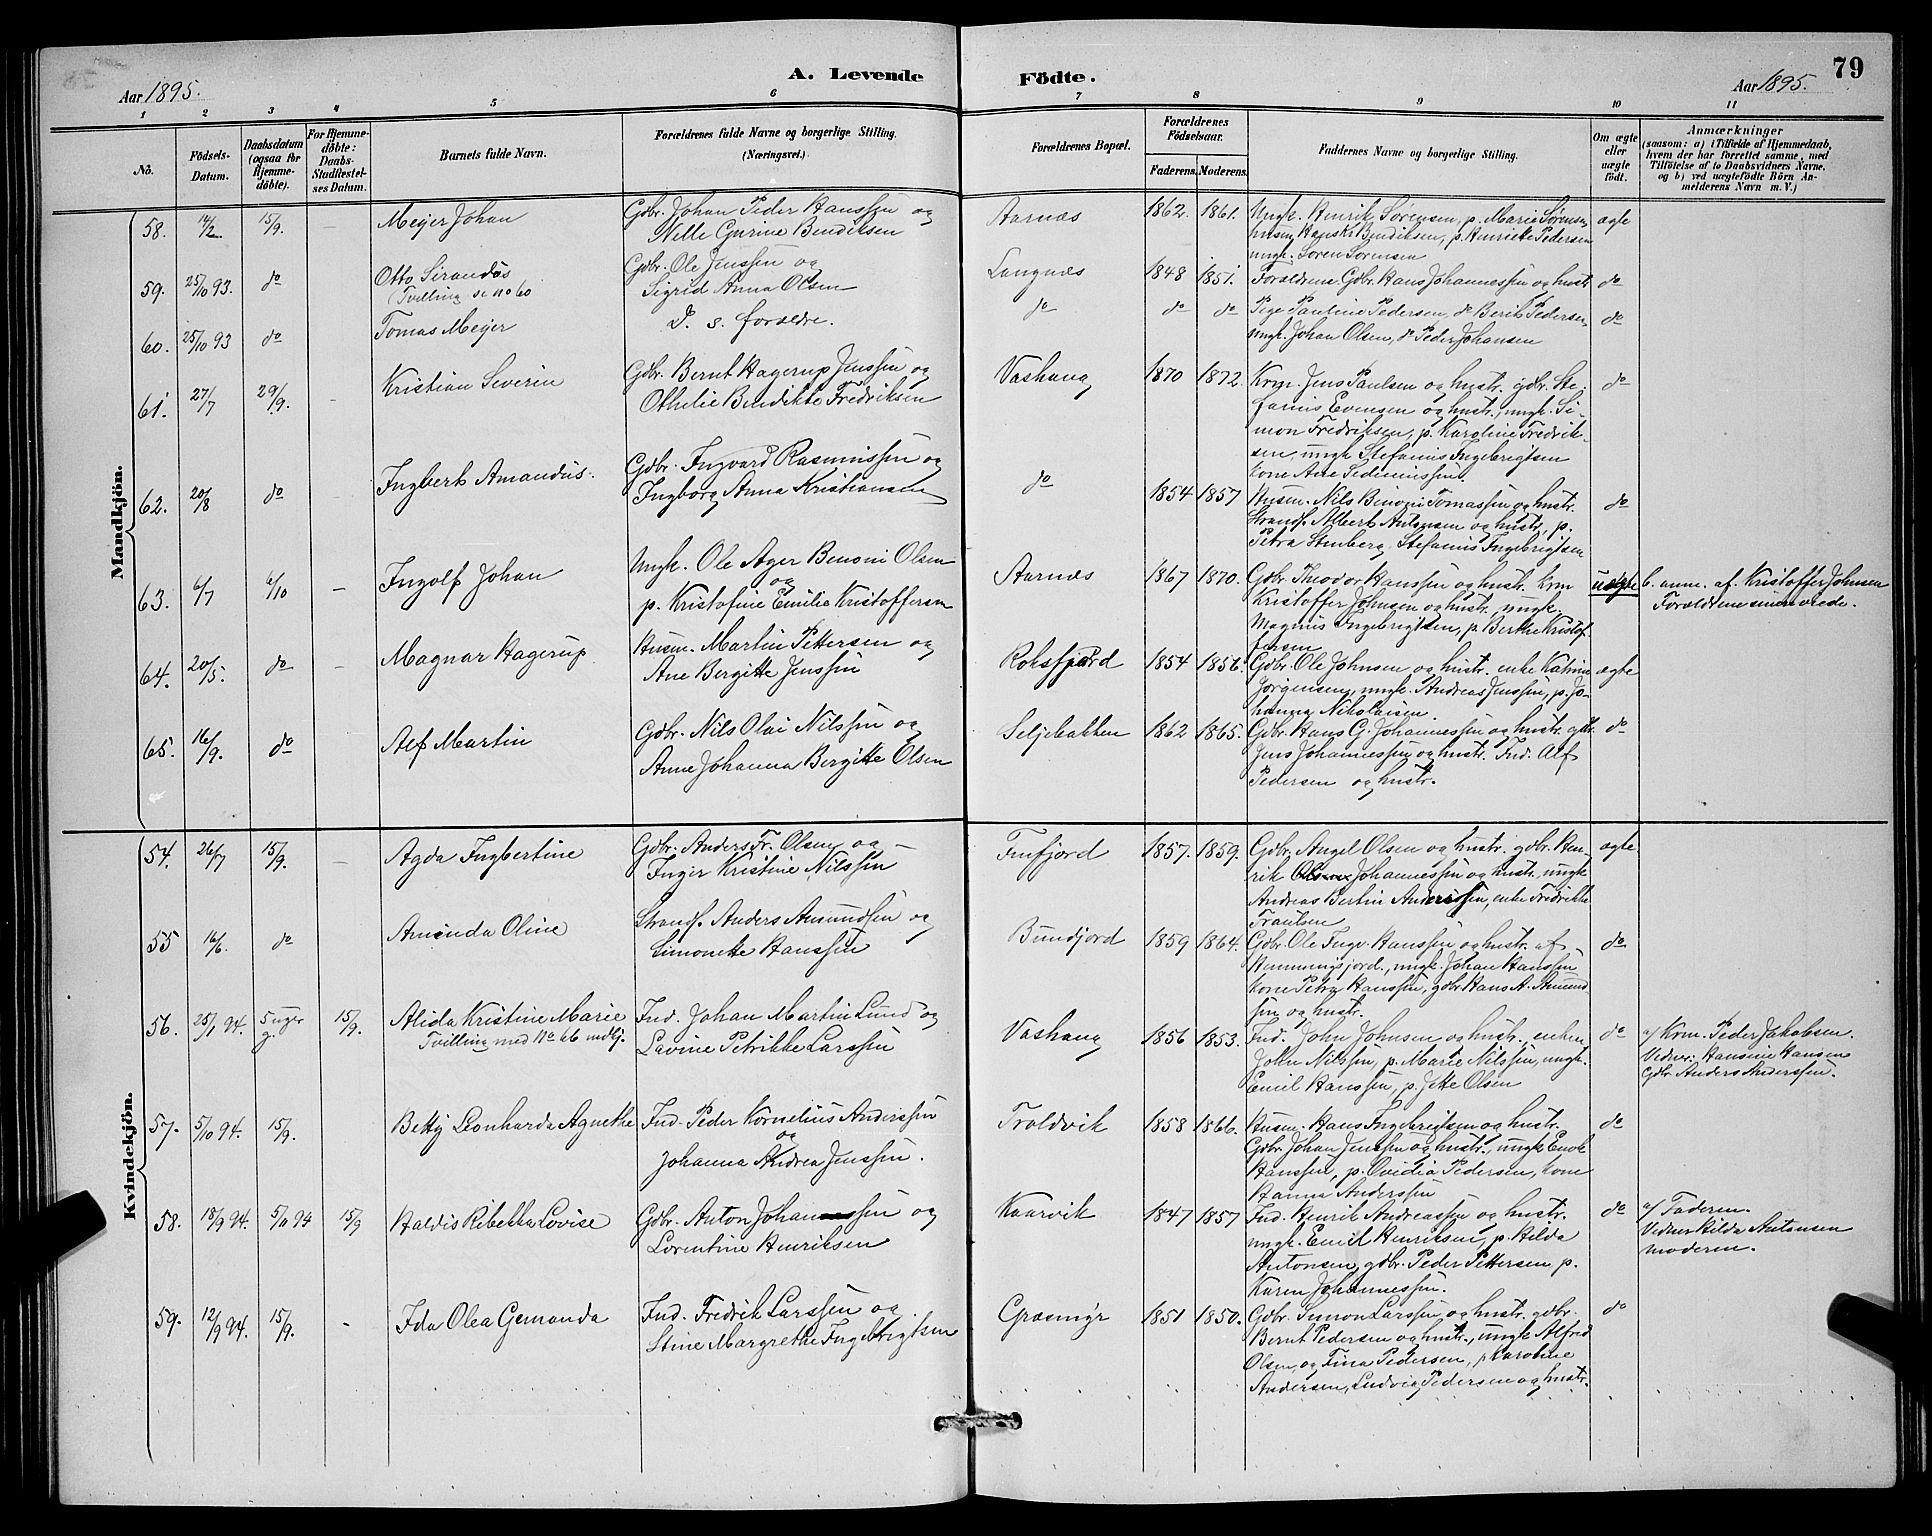 A. Levende Födte.
79
Aar 1895.
Aar 1895.
1 2 3 4 5 6 7 8 9 10 11
No.
Födsels-Datum.
Daabsdatum (ogsaa for Hjemmedöbte).
For Hjemmedöbte: Daabs-Stadfæstelses Datum.
Barnets fulde Navn.
Forældrenes fulde Navne og borgerlige Stilling. (Næringsvei.)
Forældrenes Bopæl.
Forældrenes Födselsaar.
Faderens. Moderens.
Faddernes Navne og borgerlige Stilling.
Om ægte eller uægte födt.
Anmærkninger
(saasom: a) i Tilfælde af Hjemmedaab, hvem der har forrettet samme, med Tilföielse af to Daabsvidners Navne, og b) ved uægtefödte Börn Anmelderens Navn m. V.)
Mandkjön.
58. 14/2 15/9. Meyer Johan
Gdbr. Johan Peder Hanssen og
Nelle Gurine Bendiksen
Aarnæs 1862. 1861.
Ungk. Henrik Sørensen, p. Marie Sørensen
Hansen, Bendiksen, p. Henriette Pedersen
ungk. Søren Sørensen
ægte
59. 25/10 93. do Otto Sirandus
(Tvilling se no 60
Gdbr. Ole Jenssen og
Sigrid Anna Olsen
Langnæs 1848 1851.
Forældrene Gdbr. Hans Johannessen og hustr
do
60. 25/10 93 do Tomas Meyer
D. s. forældre.
do do do
Pige Pauline Pedersen, do Berit Pedersen,
ungk. Johan Olsen, do Peder Johansen
do
61. 27/7 29/9. - Kristian Severin
Gdbr. Bernt Hagerup Jenssen og
Othelie Bendikte Fredriksen
Vashaug 1870 1872.
Krm. Jens Paulsen og hustr. gdbr. Ste-
fanus Evensen og hustr., ungk. Si-
mon Fredriksen, p. Karoline Fredrik-
sen, ungk Stefanus Ingebrigtsen
kone Ane
do
62. 20/8 do - Ingbert Amandus.
Gdbr. Ingvard Rasmussen og
Ingborg Anna Kristiansen
do 1854 1857
Husm. Nils Benoni Tomassen og hustr.
Strands. Albert Antonsen og hustr., p.
Petra Stenberg, Stefanus Ingebrigtsen
do
63. 6/7 6/10 - Ingolf Johan
Ungk. Ole Ager Benoni Olsen
og
p. Kristofine Emilie Kristoffersen
Aarnæs 1867 1870.
Gdbr. Theodor Hanssen og hustr. Krm
Kristoffer Johnsen og hustr., ungk.
Magnus Ingebrigtsen, p. Berthe Kristof
fersen
uægte
b. anm. af. Kristoffer Johnsen
Forældrene
64. 20/5. do - Magnar Hagerup
Husm. Martin Pettersen og
Ane Bergitte Jenssen
Roksfjord 1854 1856.
Gdbr. Ole Johnsen og hustr. enke Katrine
Jørgensen, ungk. Andreas Jenssen, p. Jo-
hanna Nikolaisen.
ægte
65. 16/9. do Alf Martin
Gdbr. Nils Olai Nilssen og
Anne Johanna Bergitte Olsen
Seljebakken 1862 1865.
Gdbr. Hans G. Johannessen og hustr. gdbr.
Jens Johannessen og hustr. Ind. Alf
Pedersen og hustr.
do
Kvindekjön.
54. 26/7 15/9. - Agda Ingbertine
Gdbr. Anders Fr. Olsen og -
Inger Kristine Nilssen
Finfjord 1857. 1859.
Gdbr. Angel Olsen og hustr. gdbr. Hen-
rik Johannessen og hustr. ungk
Andreas Bertin Anderssen, enke Fredrikke
Trautsen
ægte
55 16/6. do Aminda Oline
Strands. Anders Amundsen og
Simonette Hanssen
Bundjord 1859 1864.
Gdbr. Ole Ingv. Hanssen og hustr. af
Hemmingsjord., ungk. Johan Hanssen
kone Petra Hanssen, gdbr Hans A. Amund
sen og hustr.
do
56. 25/1 94. 5 uger g. 15/9. Alida Kristine Marie
Tvilling med No 66 mdkj.
Ind. Johan Martin Lund og
Lavine Petrikke Larssen
Vashaug 1856 1853.
Ind. John Johnsen og hustr., enken
John Nilssen, p. Marie Nilssen, ungk.
Emil Hanssen, p. Jette Olsen
do
a/ Krm. Peder Jakobsen.
Vidner: Hansine Hansen
Gdbr. Anders Anderssen.
57. 5/10 94. 15/9. Betty Leonharda Agnethe
Ind. Peder Kornelius Anderssen
og
Johanna Andrea Jenssen.
Troldvik 1858 1866.
Husm. Hans Ingebrigtsen og hustr.
Gdbr. Johan Jenssen og hustr., ungk Enok
Hanssen, p. Ovidia Pedersen, kone
Hanna Anderssen
do
58. 18/9 94. 5/11 94 15/9 Haldis Ribekka Lovise
Gdbr. Anton Johanssen og
Lorentine Henriksen
Kaarvik 1847 1857
Ind. Henrik Andreassen og hustr.
ungk. Emil Henriksen, p. Hilda
Antonsen, gdbr. Peder Pettersen p.
Karen Johannessen.
do
a/ Faderen.
Vidner Hilda Antonsen
moderen.
59. 12/9 94. 15/9. - Ida Olea Gemanda
Ind. Fredrik Larssen og
Stine Margrethe Ingebrigtsen
Græsmyr 1851 1850.
Gdbr. Simon Larssen og hustr. gdbr.
Bernt Pedersen og hustr., ungk Alfred
Olsen og Fina Pedersen, p Karoline
Andersen, Ludvig Pedersen og hustr.
do